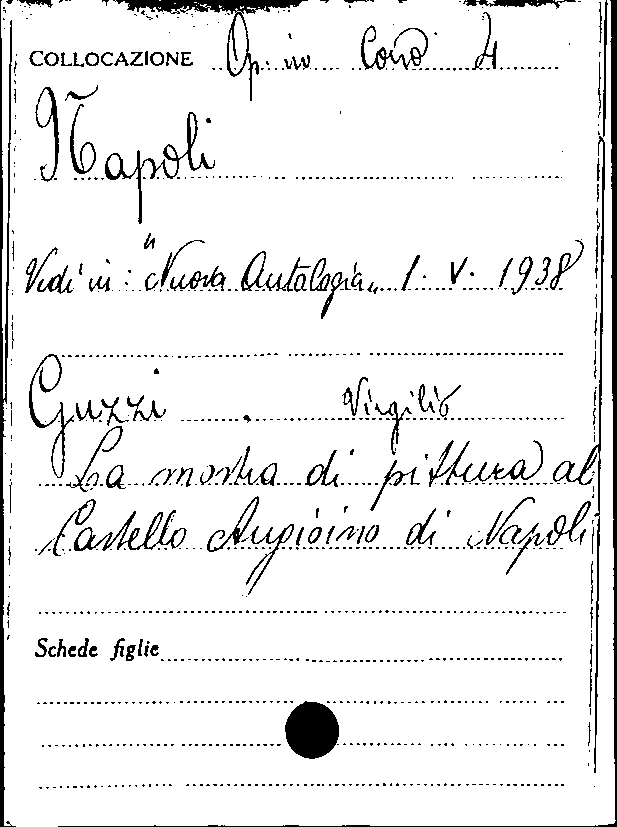 COLLOCAZIONE Op. in Corso 4
Napoli
Vedi in: "Nuova Antologia„ 1. V. 1938
Guzzi . Virgilio
La mostra di pittura al
Castello Angioino di Napoli
Schede figlie